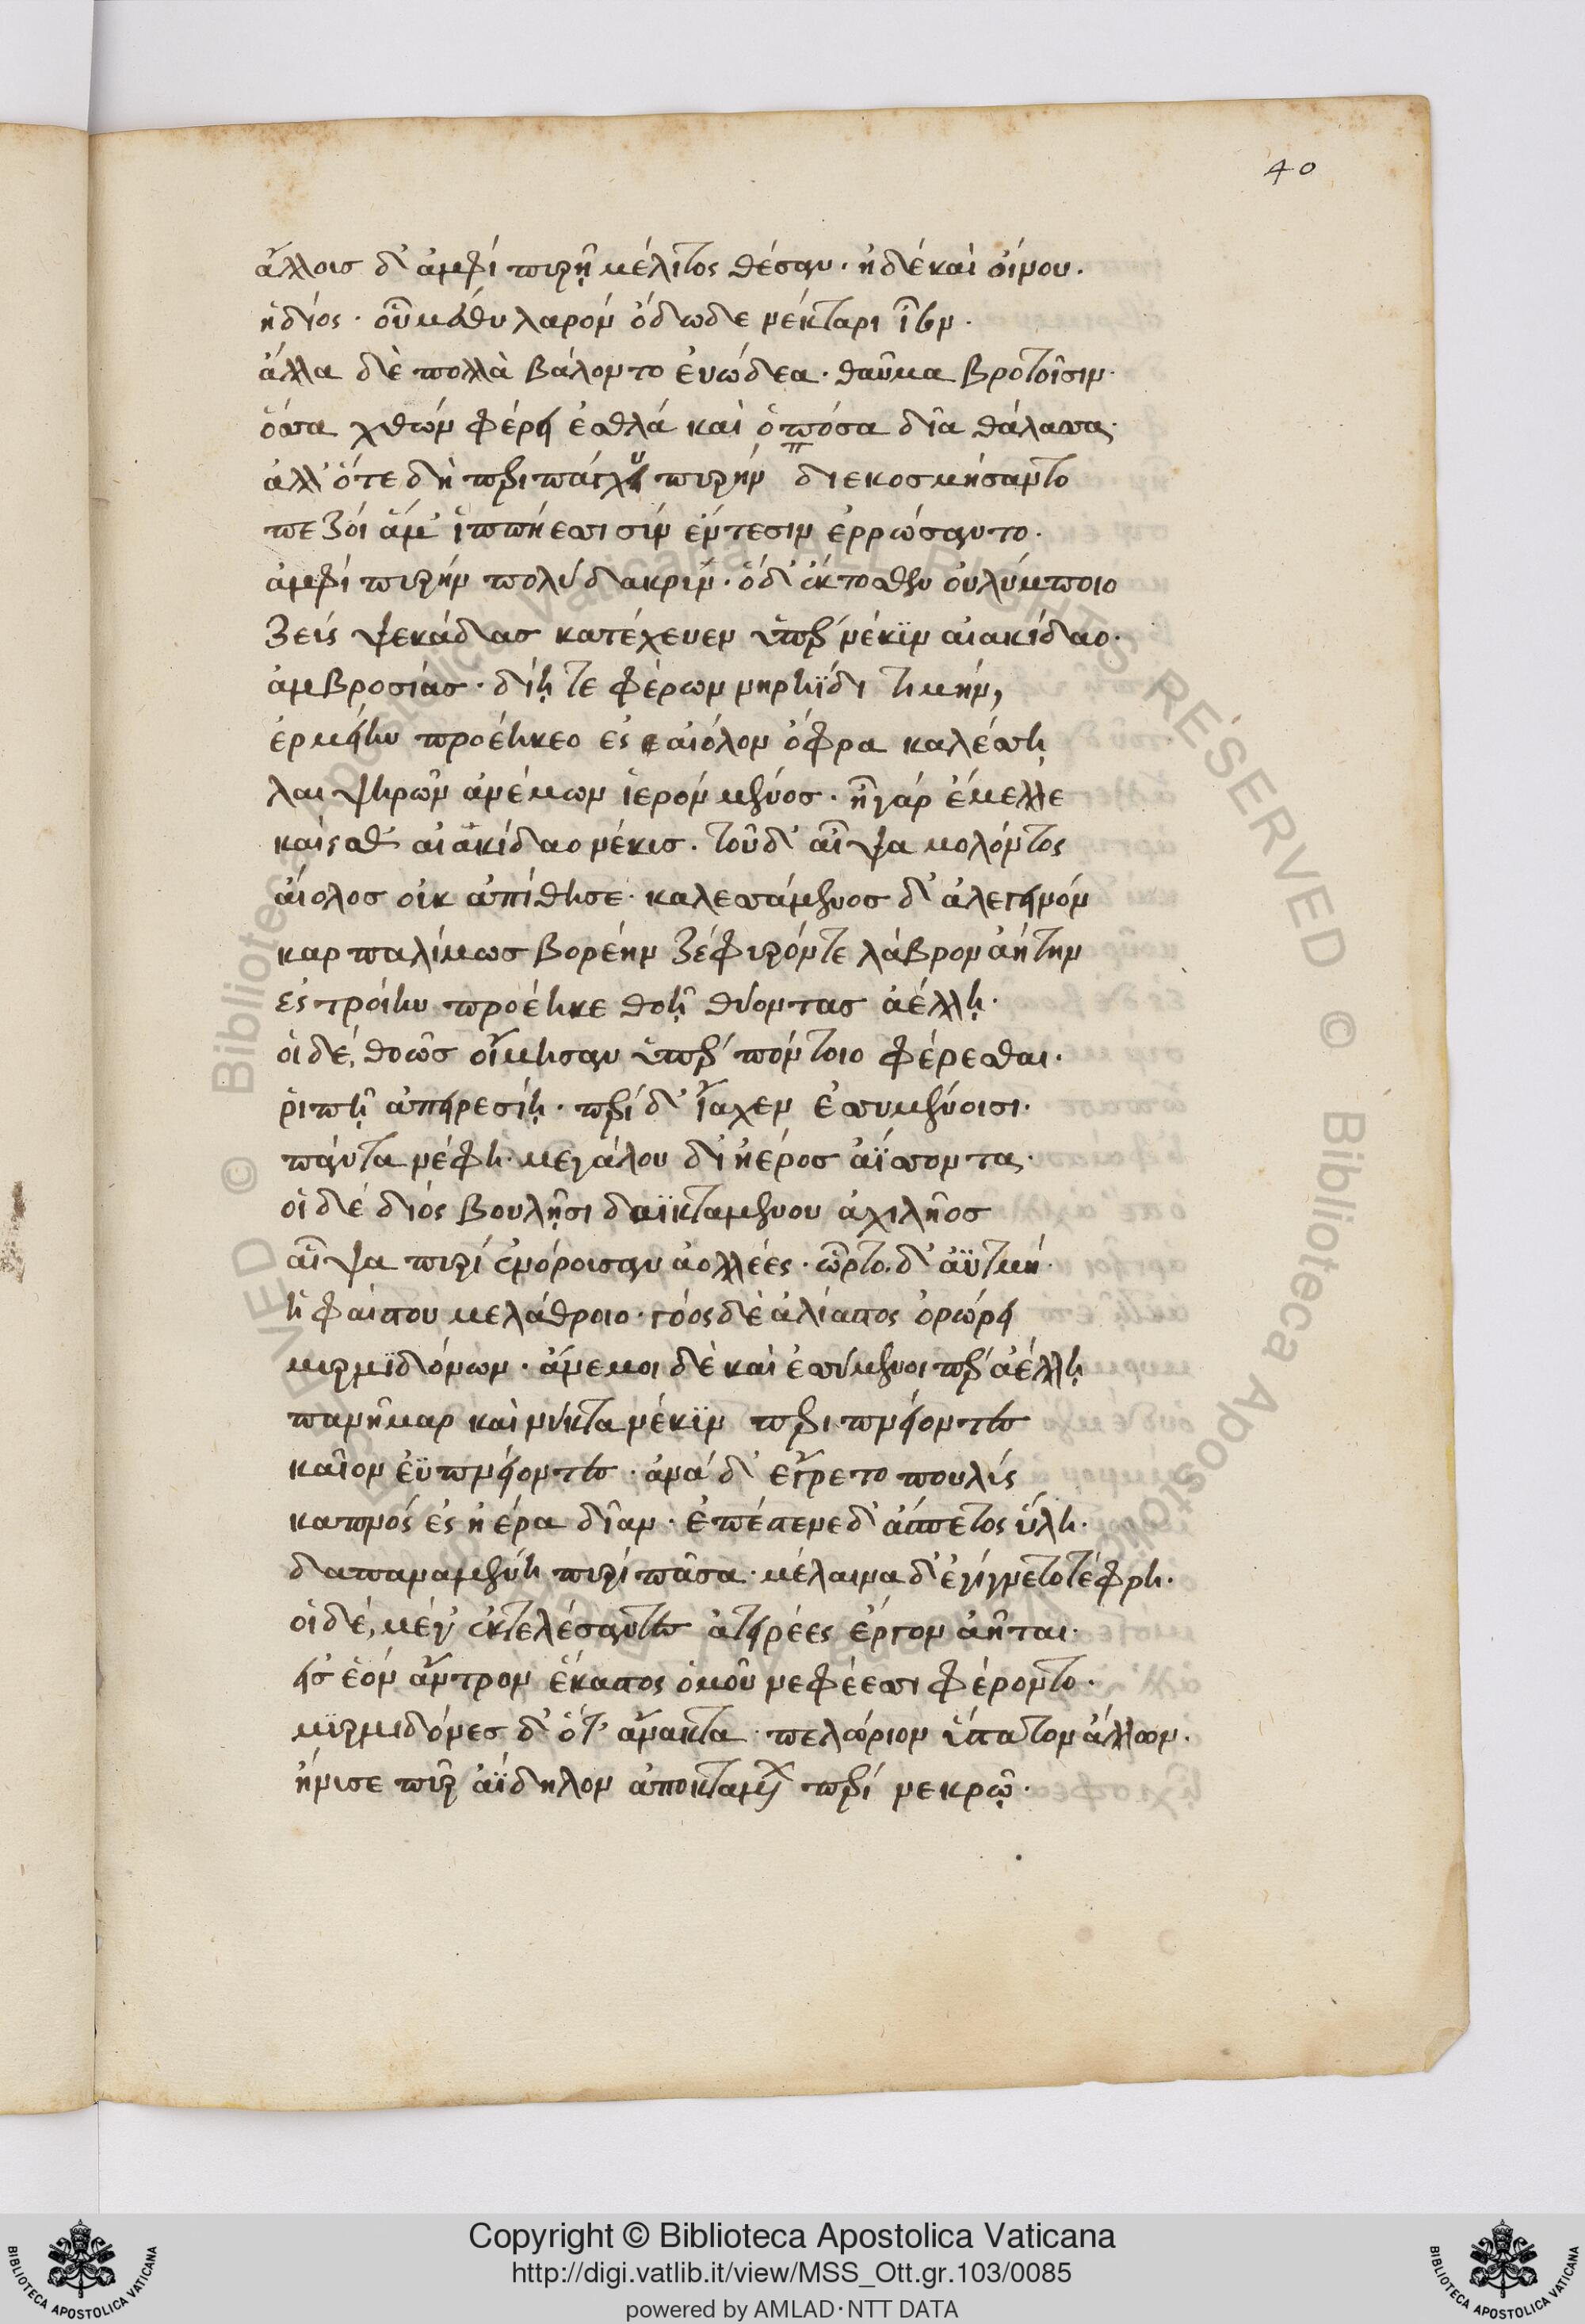 40
ἄλλοισ δ' ἀμφὶ πυρῆ μέλιτος θέσαν. ἠδὲ καὶ οἴνου.
ἡδέος. οὗ μέθυ λαρὸν ὀδωδε νέκταρι ἶσον.
ἄλλα δὲ πολλὰ βάλοντο ἐυώδεα. θαῦμα βροτοῖσιν.
ὅσσα χθὼν φέρει ἐσθλὰ καὶ ὁπόσα δῖα θάλασσα.
ἀλλ' ὅτε δὴ περιπάγχυ πυρὴν διεκοσμήσαντο
πεζοὶ ἅμ' ἱππήεσσι σὺν ἔντεσιν ἐρρώσαντο.
ἀμφὶ πυρὴν πολύδακριν. ὁ δ' ἔκτοσθεν οὐλύμποιο
ζεὺς ψεκάδας κατέχευεν ὑπὲρ νέκυν αἰακίδαο.
ἀμβροσίασ. δίη τε φέρων νηρηΐδι τιμήν,
ἑρμείην προέηκεο ἐς αἰόλον ὄφρα καλέσση
λαιψηρῶν ἀνέμων ἱερὸν μένοσ. ἦ γὰρ ἔμελλε
καίεσθ' αἰακίδαο νέκυσ. τοῦ δ' αἶψα μολόντος
αἴολοσ οὐκ ἀπίθησε. καλεσσάμενοσ δ' ἀλεγεινὸν
καρπαλίμωσ βορέην ζέφυρόν τε λάβρον ἀήτην
ἐς τροίην προέηκε θοῆ θύοντας ἀέλλη.
οἱ δὲ, θοῶσ οἴμησαν ὑπὲρ πόντοιο φέρεσθαι.
ῥιπῆ ἀπειρεσίη. περὶ δ' ἴαχεν ἐσσυμένοισι.
πάντα νέφη. μεγάλου δι' ἠέροσ ἀΐσσοντα.
οἱ δὲ διὸς βουλῆσι δαϊκταμένου ἀχιλῆοσ
αἶψα πυρὶ ἐνόρουσαν ἀολλέες. ὦρτο. δ' ἀϋτμή.
ἡφαίστου μελάθροιο. γόος δὲ ἀλίαστος ὀρώρει
μυρμιδόνων. ἄνεμοι δὲ καὶ ἐσσύμενοι περ ἀέλλη
πανῆμαρ καὶ νύκτα νέκυν περιπνείοντες
καῖον ἐϋπνείοντες. ἀνὰ δ' ἔγρετο πουλὺς
καπνὸς ἐς ἠέρα δῖαν. ἐπέστενε δ' ἄσπετος ὕλη.
δαπαναμένη πυρὶ πᾶσα. μέλαινα δ' ἐγίγνετο τέφρη.
οἱ δὲ, μέγ' ἐκτελέσαντες ἀτειρέες ἔργον ἀῆται.
εἰσ ἑὸν ἄντρον ἕκαστος ὁμοῦ νεφέεσσι φέροντο.
μυρμιδόνεσ δ' ὅτ' ἄνακτα πελώριον ὕστατον ἄλλων.
ἤνυσε πῦρ ἀΐδηλον ἀποκταμένων περὶ νεκρῶ.
Copyright © Biblioteca Apostolica Vaticana
http://digi.vatlib.it/view/MSS_Ott.gr.103/0085
powered by AMLAD·NTT DATA